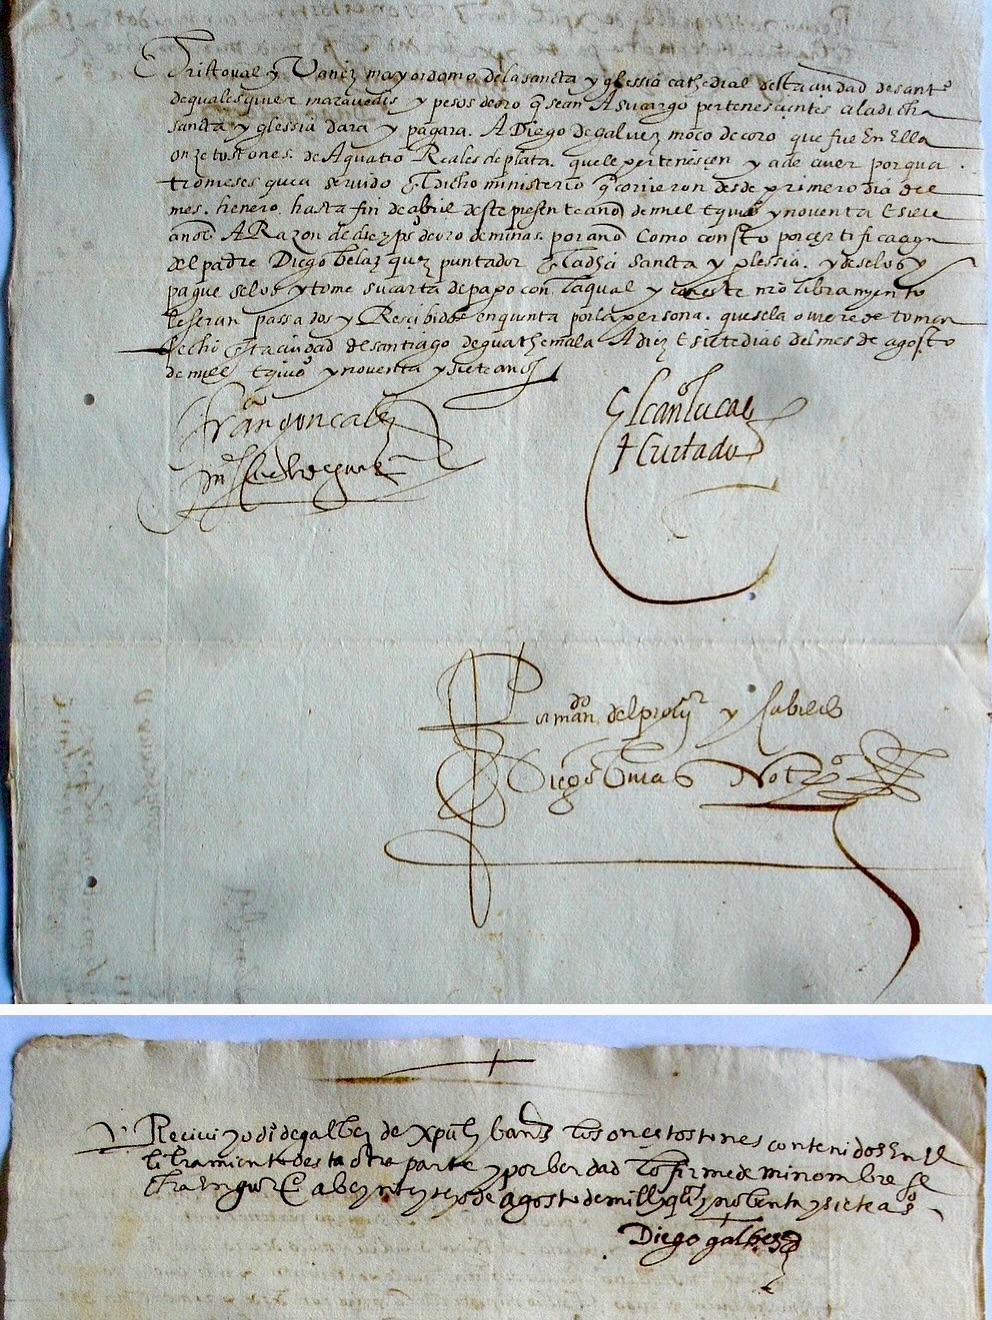 Cristoual yvañez mayordomo de la sancta yglessia cathedral desta ciudad de santo
de qualesquier maravedis y pesos de oro q sean A su cargo pertenesçientes a la dicha
sancta yglessia dara y pagara. A Diego de galuez moço de coro que fue En Ella
onze tostones. de A quatro Reales de plata. que le pertenesçen y a de auer por qua
tro meses que a seruido El dicho ministerio q corrieron desde primero dia del
mes. henero. hasta fin de abril deste presente año de mill E qui°s y noventa E siete
años A Razon de diez ps de oro de minas. por año Como consto por certificaçion
del padre Diego belazquez puntador de la dha sancta yglessia. y de selos
pague selos y tome su carta de pago con la qual y con este nro libramyento
le seran passados y Resçibidos en quenta por la persona. que se la ouiere de tomar
fecho En la ciudad de santiago de guathemala A diez E siete dias del mes de agosto
de mill E qui°s y noventa y siete años
fran gonçalez
El can° lucas
Hurtado
Por mando del prouisor y cabildo
Diego Notº
Reciui yo di° de galbez de xpual banes los onçe tostones contenidos En el
libramiento desta otra parte y por berdad lo firme de mi nombre fe
cha En gua a beynte y de agosto de mill y qui°s y nobenta y siete as
Diego galbez